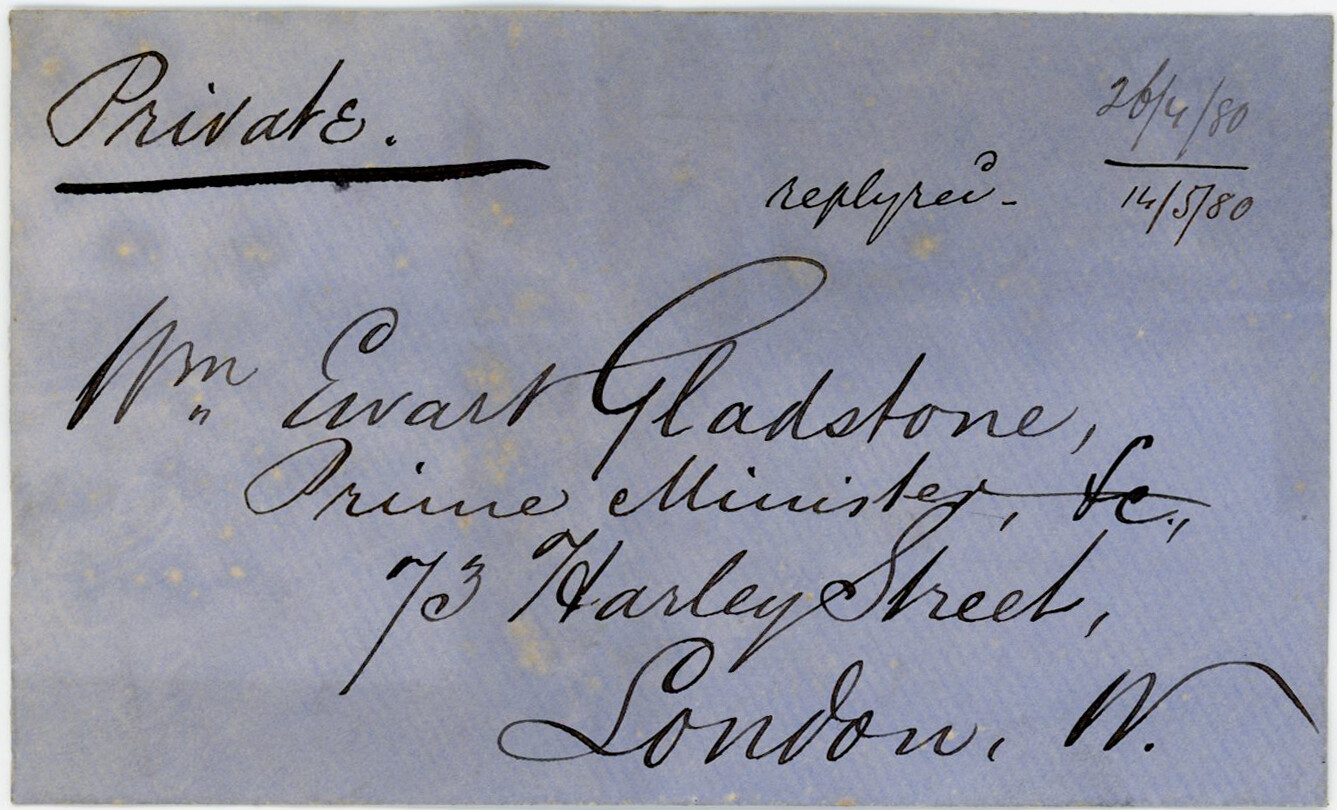 Private.
26/4/80
replyrec'd- 14/5/80
Wm Ewart Gladstone,
Prime Minister, &c.,
73 Harley Street,
London, W.